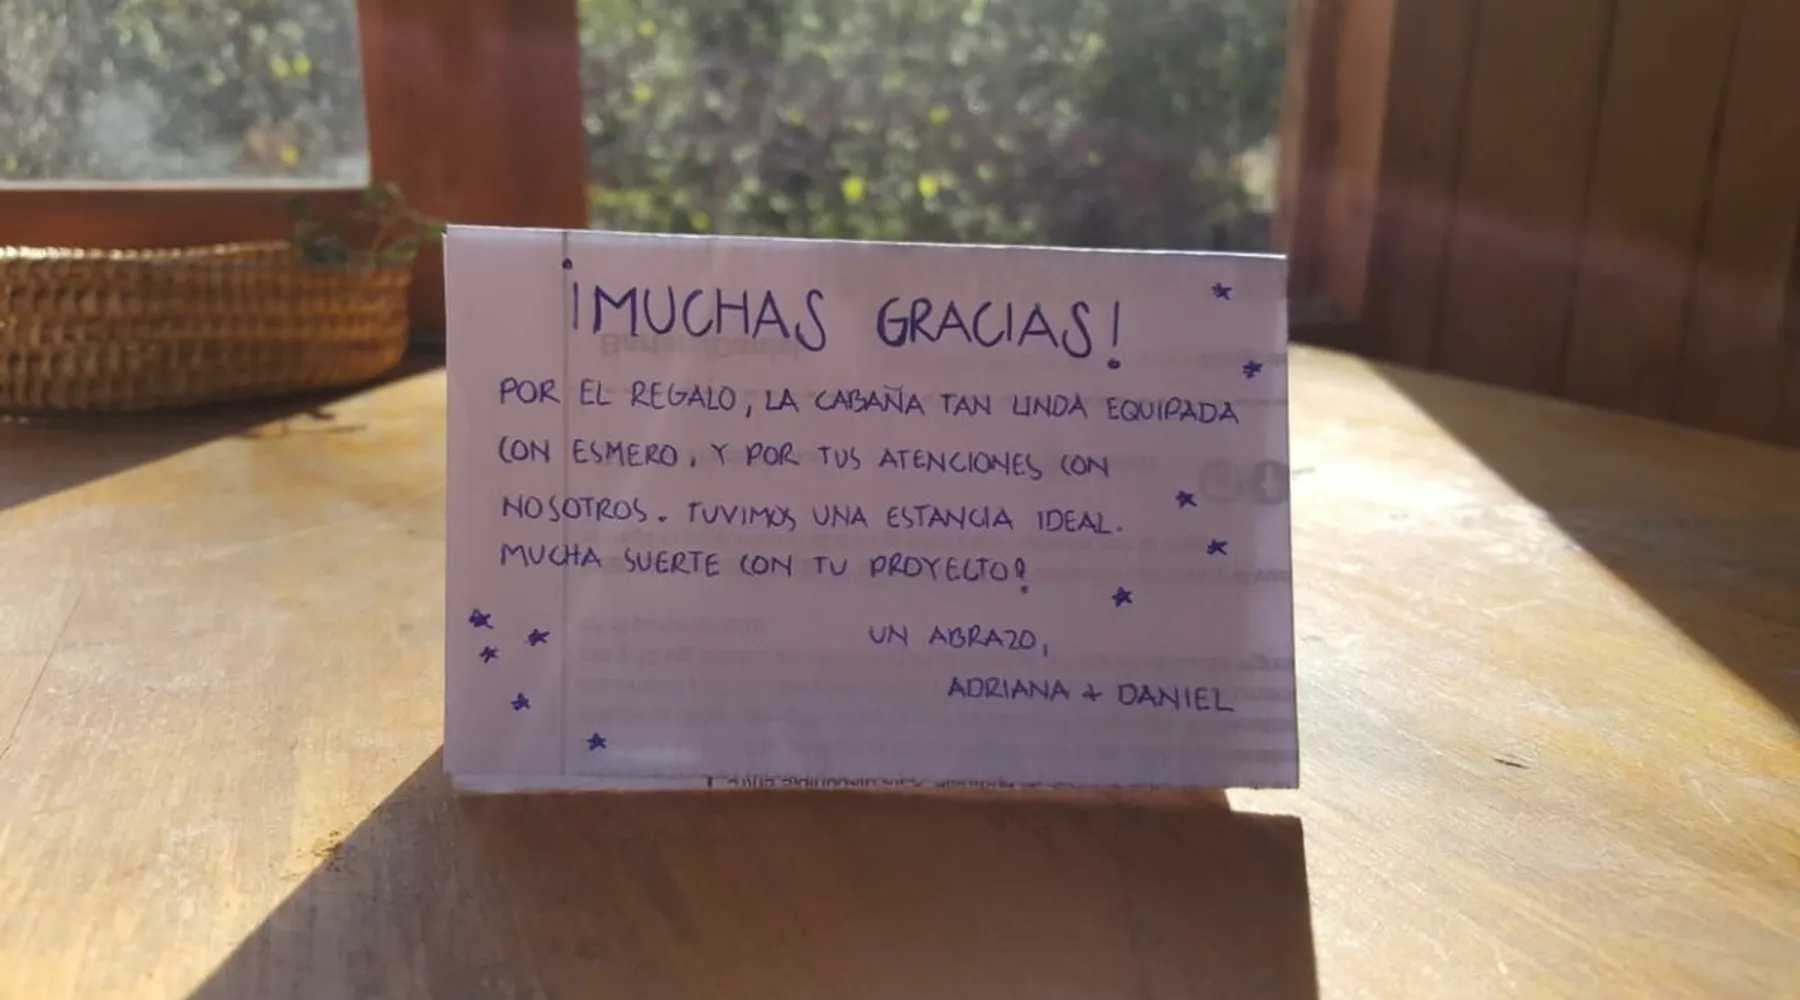 ¡MUCHAS GRACIAS!
POR EL REGALO, LA CABAÑA TAN LINDA EQUIPADA
CON ESMERO, Y POR TUS ATENCIONES CON
NOSOTROS. TUVIMOS UNA ESTANCIA IDEAL.
MUCHA SUERTE CON TU PROYECTO!
UN ABRAZO,
ADRIANA + DANIEL